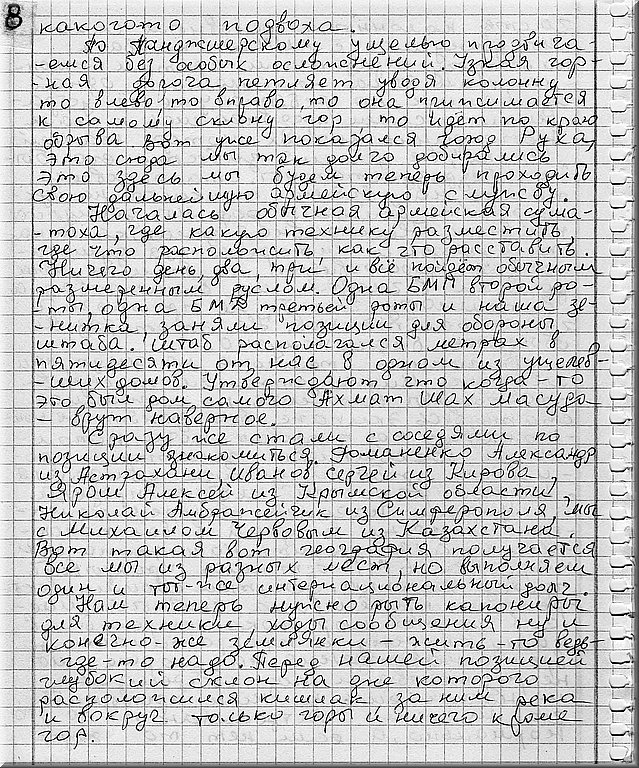 8
какогото подвоха.
По Панджшерскому ущелью продвига-
-емся без особых осложнений. Узкая гор-
-ная дорога петляет уводя колонну
то влево то вправо, то она прижимается
к самому склону гор то идёт по краю
обрыва вот уже показался город Руха,
Это сюда мы так долго добирались
Это здесь мы будем теперь проходить
свою дальнейшую армейскую службу.
Началась обычная армейская сума-
-тоха, где какую технику разместить
где что расположить, как что расставить.
Ничего день, два, три и всё пойдёт обычным
размеренным руслом. Одна БМП второй ро-
-ты, одна БМП третьей роты и наша зе-
-нитка заняли позиции для обороны
штаба. Штаб располагался метрах в
пятидесяти от нас в одном из уцелев-
-ших домов. Утверждают что когда-то
это был дом самого Ахмат Шах Масуда
- врут наверное.
Сразу же стали с соседями по
позиции знакомиться. Романенко Александр
из Астрахани, Иванов Сергей из Кирова,
Ярош Алексей из Крымской области
Николай Амбражейчик из Симферополя, мы
с Михаилом Червовым из Казахстана.
Вот такая вот география получается
все мы из разных мест, но выполняем
один и тот-же интернациональный долг.
Нам теперь нужно рыть капониры
для техники, ходы сообщения ну и
конечно-же землянки - жить-то ведь
где-то надо. Перед нашей позицией
глубокий склон на дне которого
расположился кишлак за ним река
и вокруг только горы и ничего кроме
гор.